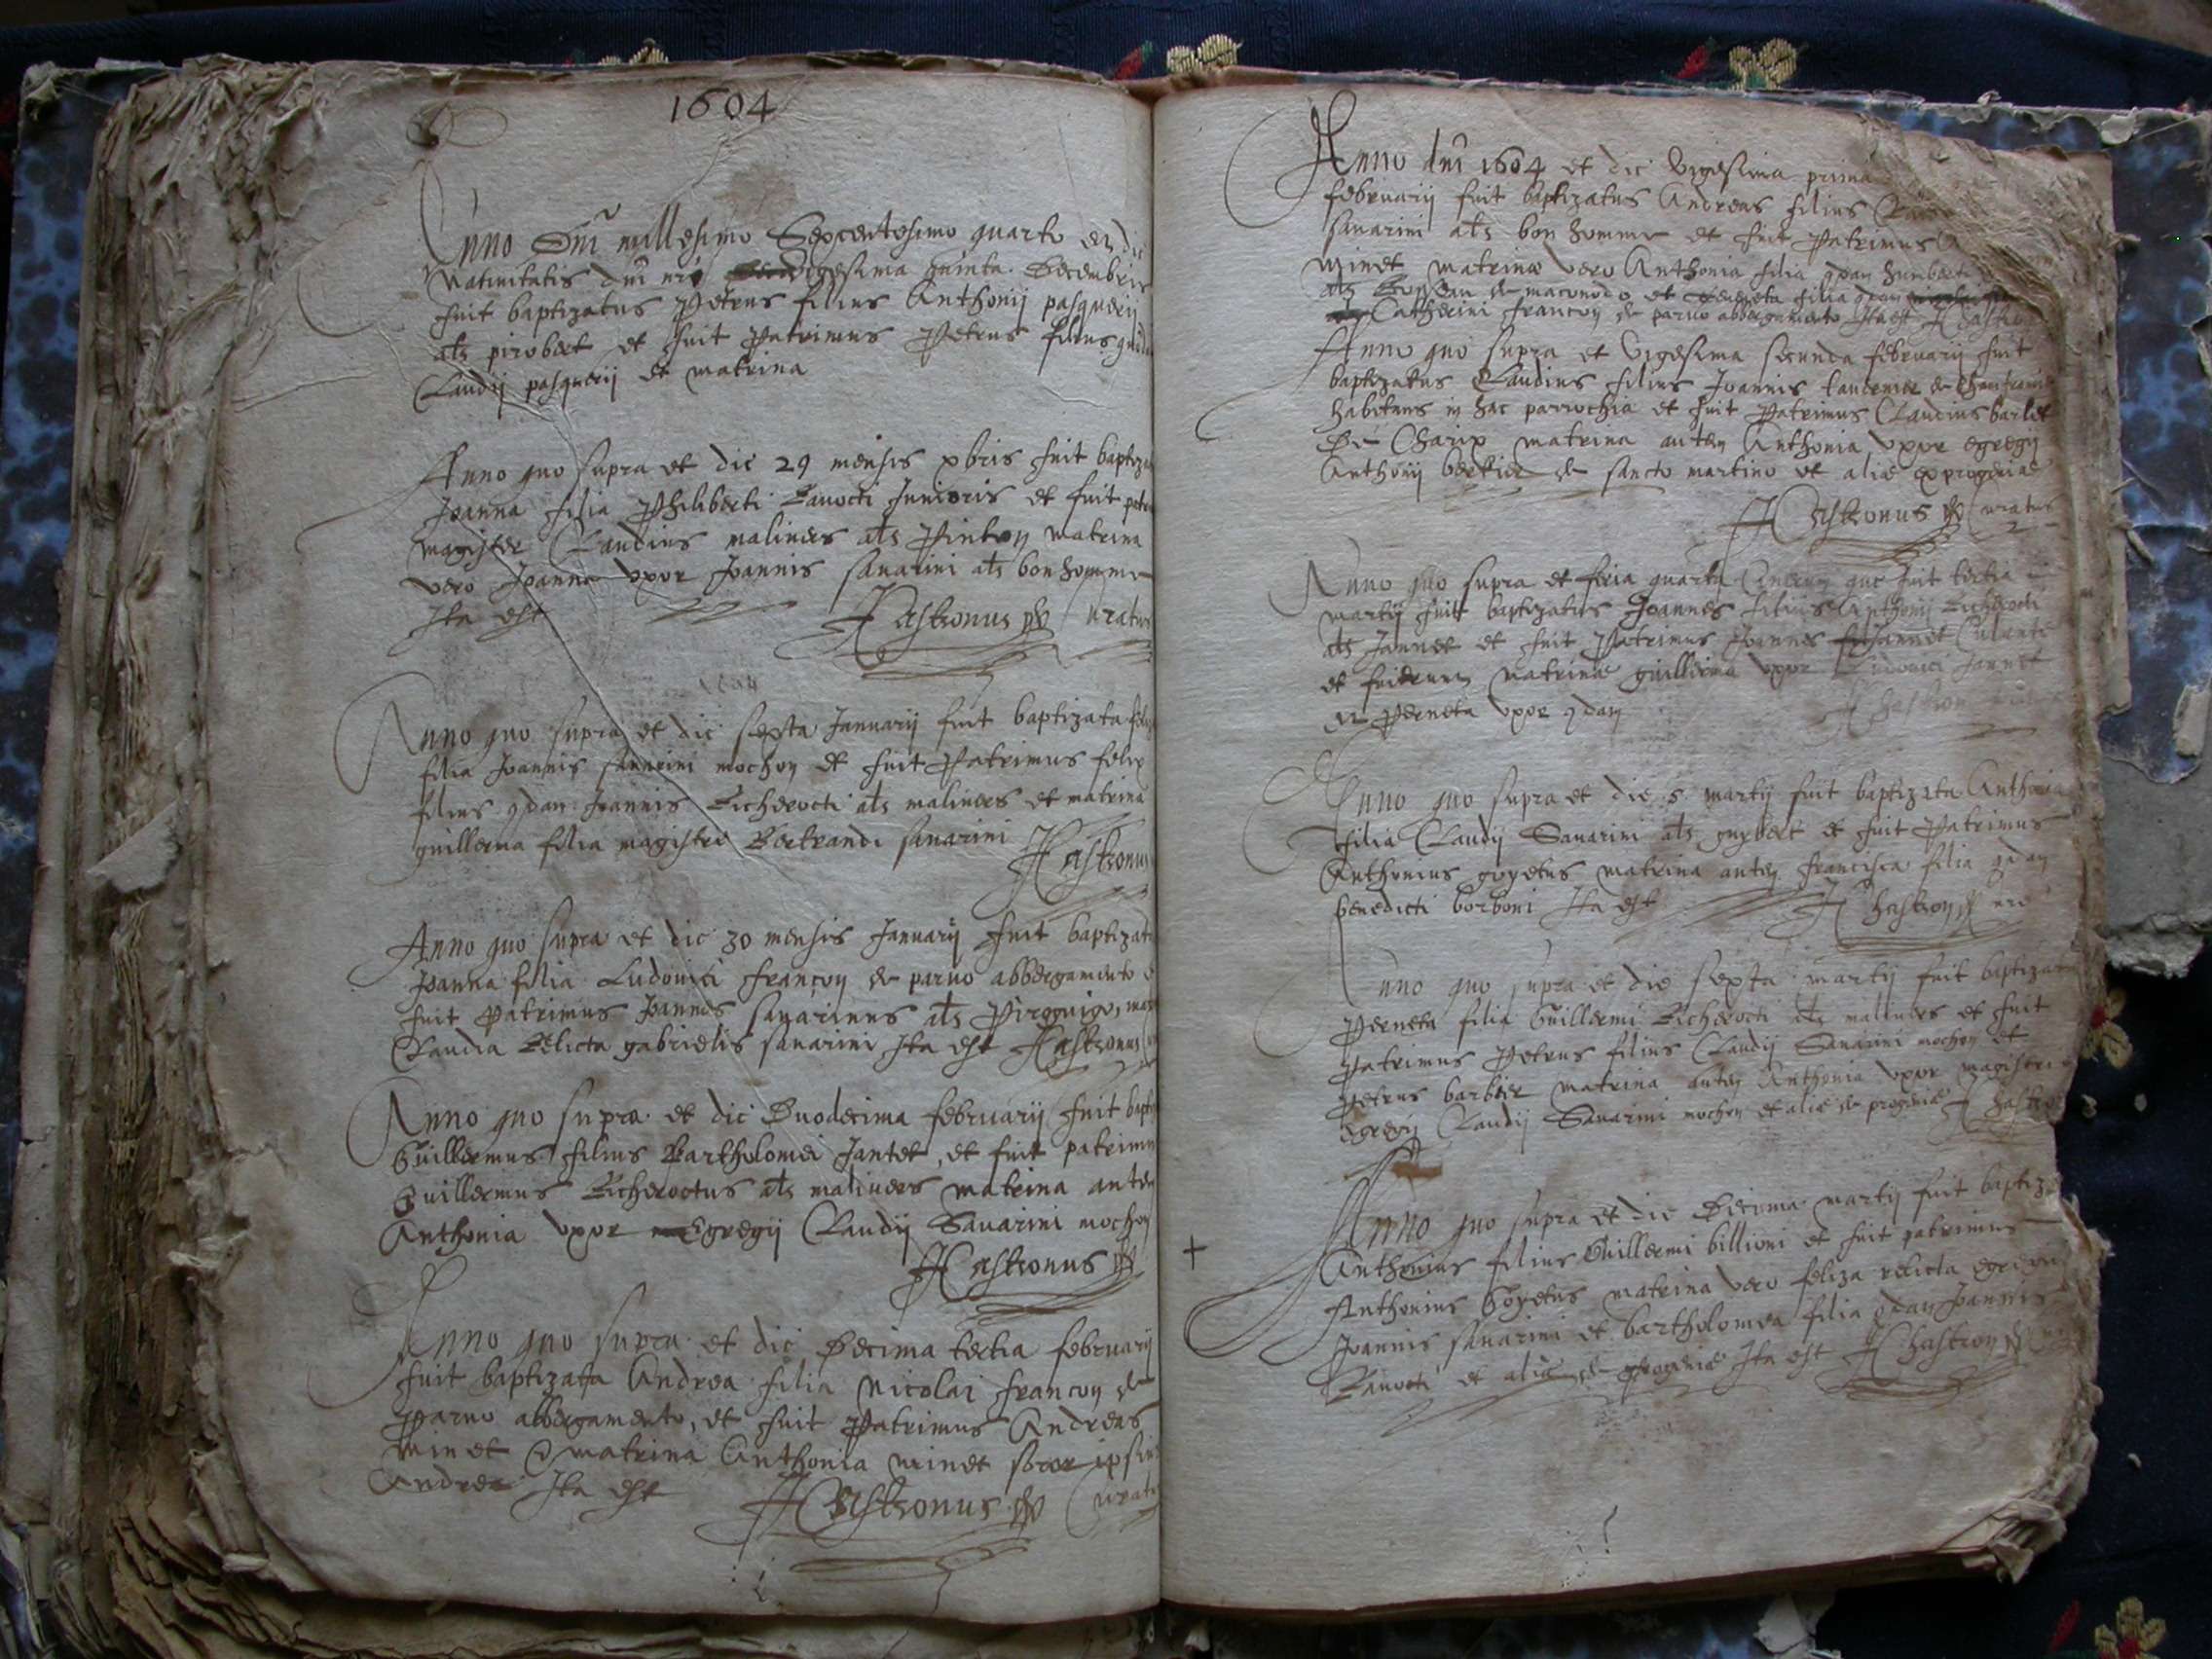 1604
Anno Dni millesimo Sexcentesimo quarto et die
Nativitatis dni nri vigesima quinta Decembris
fuit baptizatus Petrus filius Anthonij pasquerij
als pirobert et fuit Patrimus Petrus filius
Claudij pasquerij et matrina
Anno quo supra et die 29 mensis xbris fuit baptiza
Joanna filia Philiberti Ravocti Junioris et fuit
magister Claudius maliners als Pinton matrina
vero Joanna vxor Joannis savarini als bon homme
Ita est Castronus Curatus
Anno quo supra et die sexta Januarij fuit baptizata
filia Joannis savarini mochon et fuit Patrimus felix
filius qdam Joannis Richerocti als maliners et matrina
guillerma filia magistri Bertrandi savarini
Castronus
Anno quo supra et die 30 mensis Januarij fuit baptizata
Joanna filia Ludovici francon de parvo abbergamento
fuit Patrimus Joannes savarinus als Piroguigo,
Claudia Relicta gabrielis savarini Ita est Castronus
Anno quo supra et die Duodecima februarij fuit bapti
Guillermus filius Bartholomei Jantet, et fuit patrimus
Guillermus Richeroctus als maliners matrina autem
Anthonia vxor Egregij Claudij Savarini mochon
Castronus
Anno quo supra et die Decima tertia februarij
fuit baptizata Andrea filia Nicolai francon de
Parvo abbergamento, et fuit Patrimus Andreas
minet et matrina Anthonia minet soror ipsius
Andreae Ita est Castronus Curatus
Anno dni 1604 et die Vigesima prima
februarij fuit baptizatus Andreas filius
savarini als bon homme et fuit Patrimus
Minet matrinae vero Anthonia filia qdam humberti
als de maconodo et filia qdam
Catherini francon de parvo abbergamento Ita est
Anno quo supra et Vigesima secunda februarij fuit
baptizatus Claudius filius Joannis tavernier de
habitans in hac parrochia et fuit Patrimus Claudius barlet
De Charix matrina autem Anthonia vxor egregij
Anthonij bertier de sancto martino et aliae ex progeniae
Castronus Curatus
Anno quo supra et feria quarta Cinerum que fuit tertia
martij fuit baptizatus Joannes filius Anthonij Richerocti
als Jannet et fuit Patrimus Joannes Jannet
et fuerunt matrinae guillerma vxor Ludovici Jannet
et Perneta vxor qdam
Anno quo supra et die 5 martij fuit baptizata Anthonia
filia Claudij Savarini als guybert et fuit Patrimus
Anthonius goyetus matrina autem francisca filia qdam
benedicti borboni Ita est Chastron
Anno quo supra et die sexta martij fuit baptizata
Perneta filia Guillermi Richerocti als maliners et fuit
patrimus Petrus filius Claudij Savarini mochon et
petrus barbier matrina autem Anthonia vxor magistri
egregij Claudij Savarini mochon et aliae de progeniae
Anno quo supra et die Decima martij fuit baptiz
Anthonius filius Guillermi billioni et fuit patrimus
Anthonius Goyetus matrina vero feliza relicta egregij
Joannis savarini et bartholomea filia qdam Joannis
Ravocti et aliae de progeniae Ita est Chastron